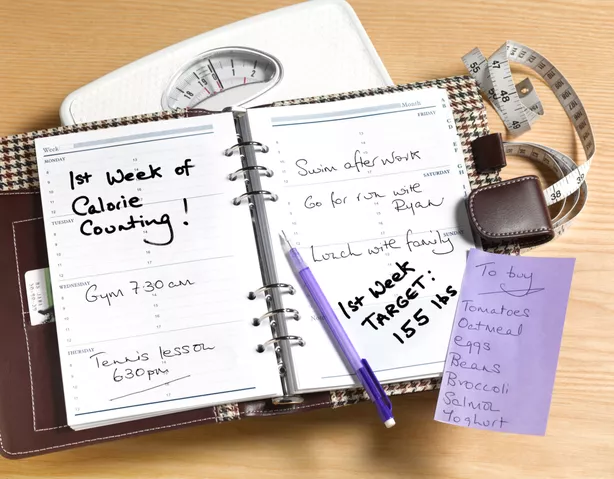 Week
MONDAY
1st Week of
Calorie
Counting!
TUESDAY
WEDNESDAY
Gym 7 30 am
THURSDAY
Tennis lesson
6 30 pm
Month
FRIDAY
Swim after work
SATURDAY
Go for run with
Ryan
SUNDAY
Lunch with family
1st Week
TARGET:
155 lbs
To buy
Tomatoes
Oatmeal
eggs
Beans
Broccoli
Salmon
Yoghurt
47
48
38